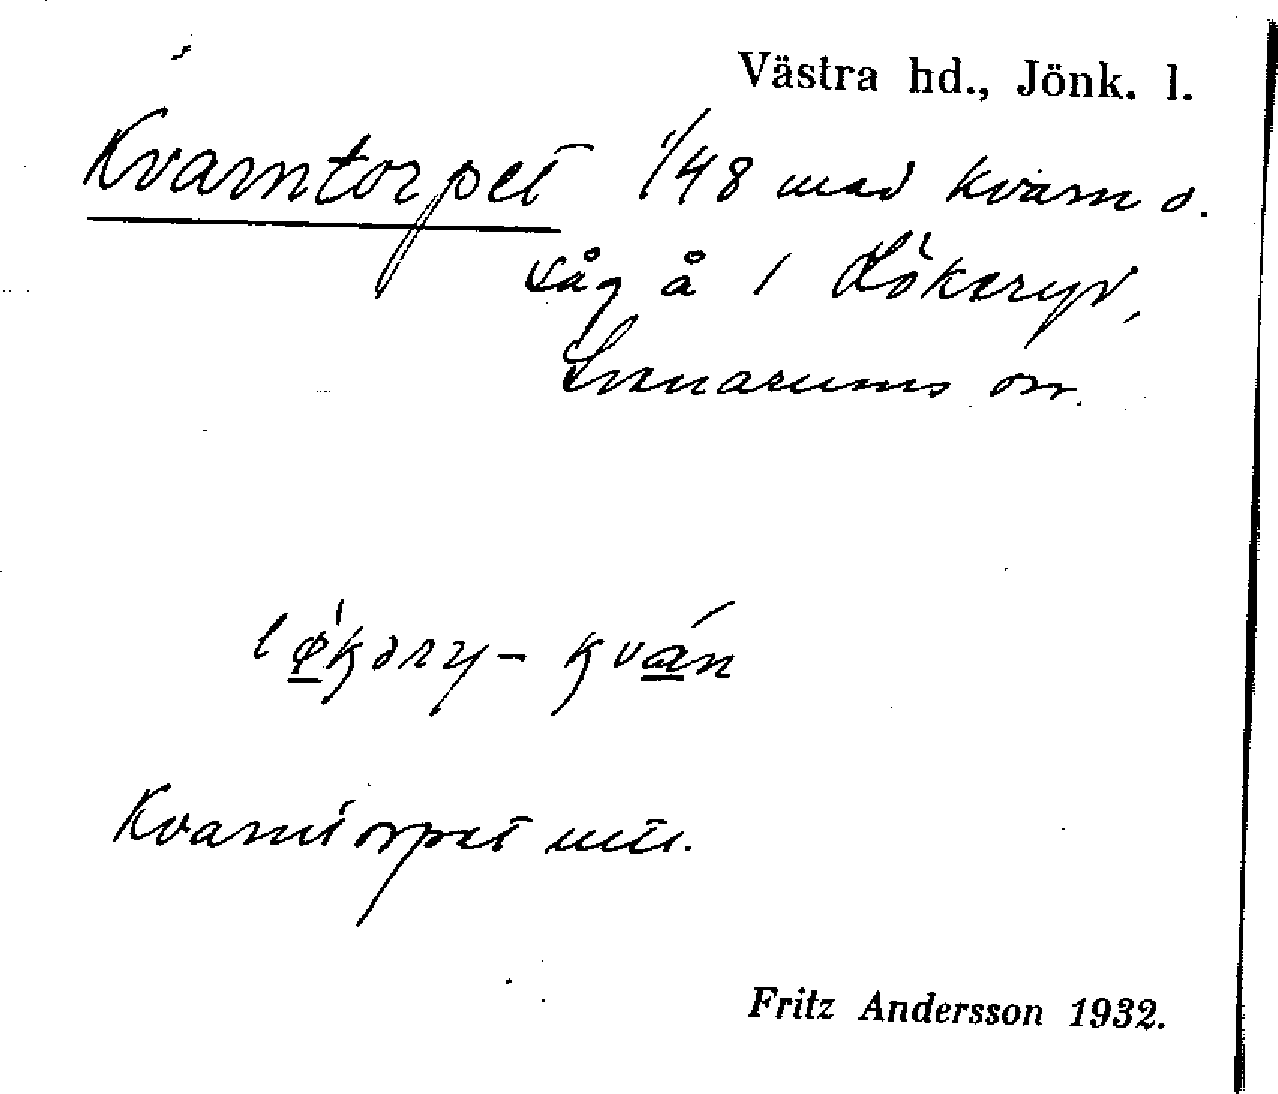 Västra hd., Jönk. l.
Kvarntorpet 1/48 med kvarn o.
såg å 1 Lökeryd,
Svenarums sn.
lǿ̱kəry-kvá̱n
Kvarntorpet utt.
Fritz Andersson 1932.